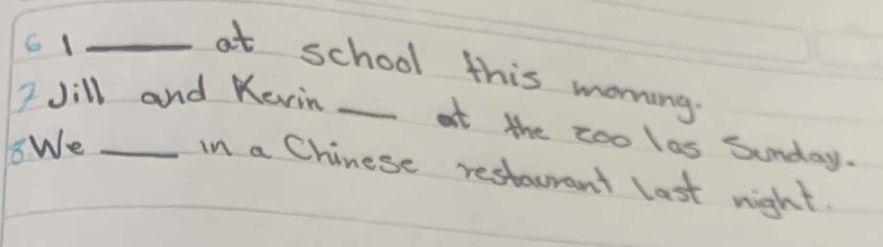 6 I ____ at school this morning.
7 Jill and Kevin ____ at the zoo las Sunday.
8 We ____ in a Chinese restaurant last night.